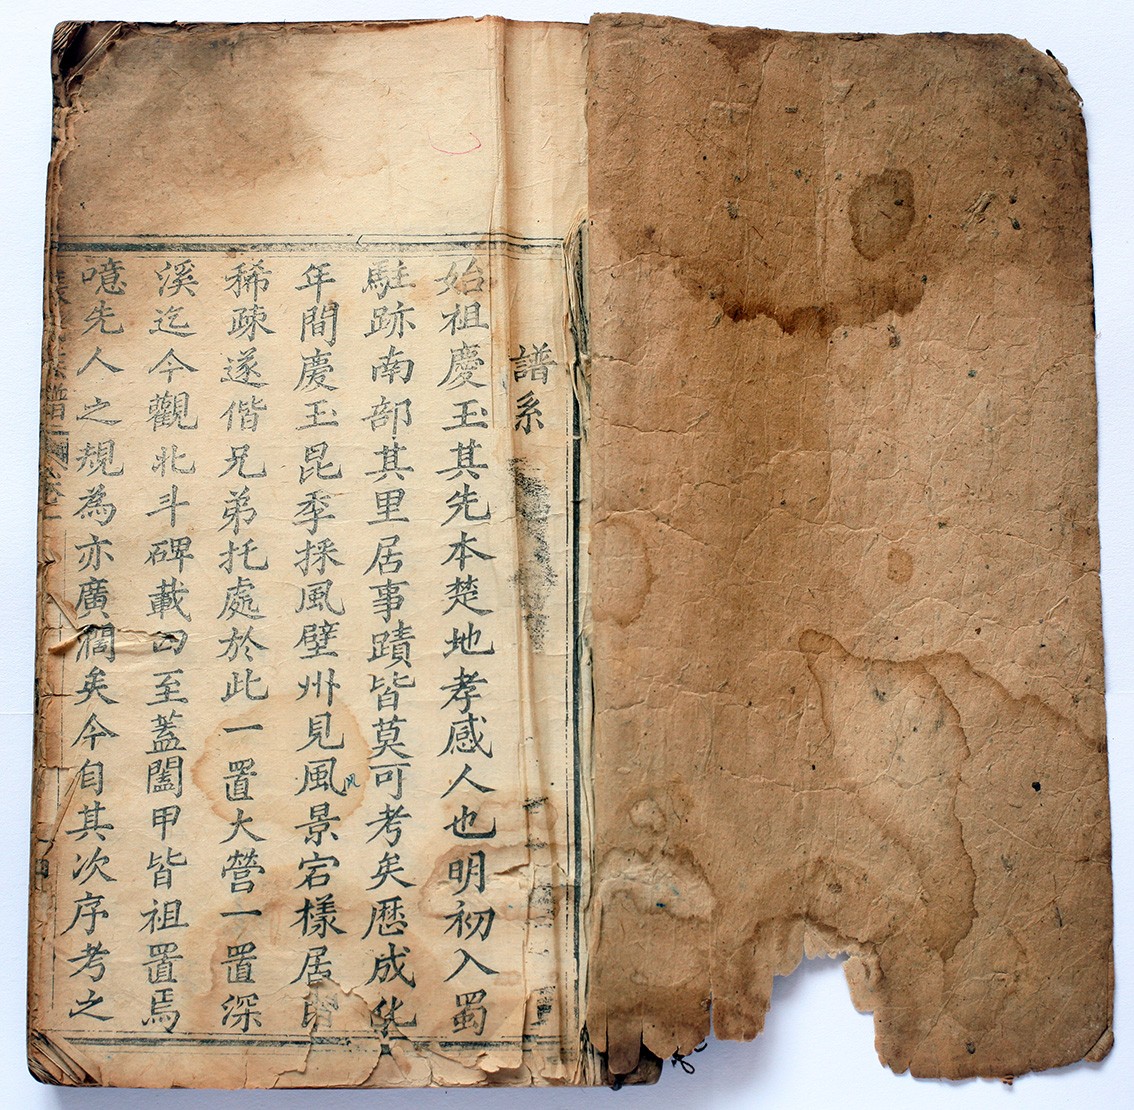 譜系
始祖慶玉其先本楚地孝感人也明初入蜀
駐跡南部其里居事蹟皆莫可考矣歷成化
年間慶玉昆季採風壁州見風景宕樣居
稀疎遂偕兄弟托處於此一置大營一置深
溪迄今觀北斗碑載四至蓋闔甲皆祖置焉
噫先人之規為亦廣濶矣今自其次序考之
譜 卷一